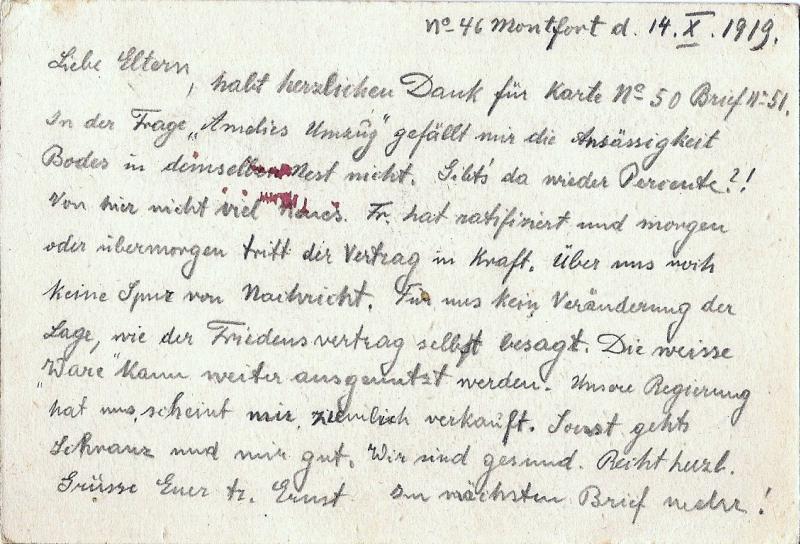 No 46 Montfort d. 14. X. 1919.
Liebe Eltern, habt herzlichen Dank für Karte No 50 Brief No 51.
In der Frage „Amelies Umzug" gefällt mir die Ansässigkeit
Bodes in demselben Nest nicht. Gibt's da wieder Percente?!
Von hier nicht viel Neues. Fr. hat ratifiziert und morgen
oder übermorgen tritt der Vertrag in Kraft. Über uns noch
keine Spur von Nachricht. Für uns kein Veränderung der
Lage, wie der Friedensvertrag selbst besagt. Die weisse
„Ware" kann weiter ausgenutzt werden. Unsere Regierung
hat uns, scheint mir, ziemlich verkauft. Sonst gehts
Schranz und mir gut. Wir sind gesund. Recht herzl.
Grüsse Euer tr. Ernst Im nächsten Brief mehr!